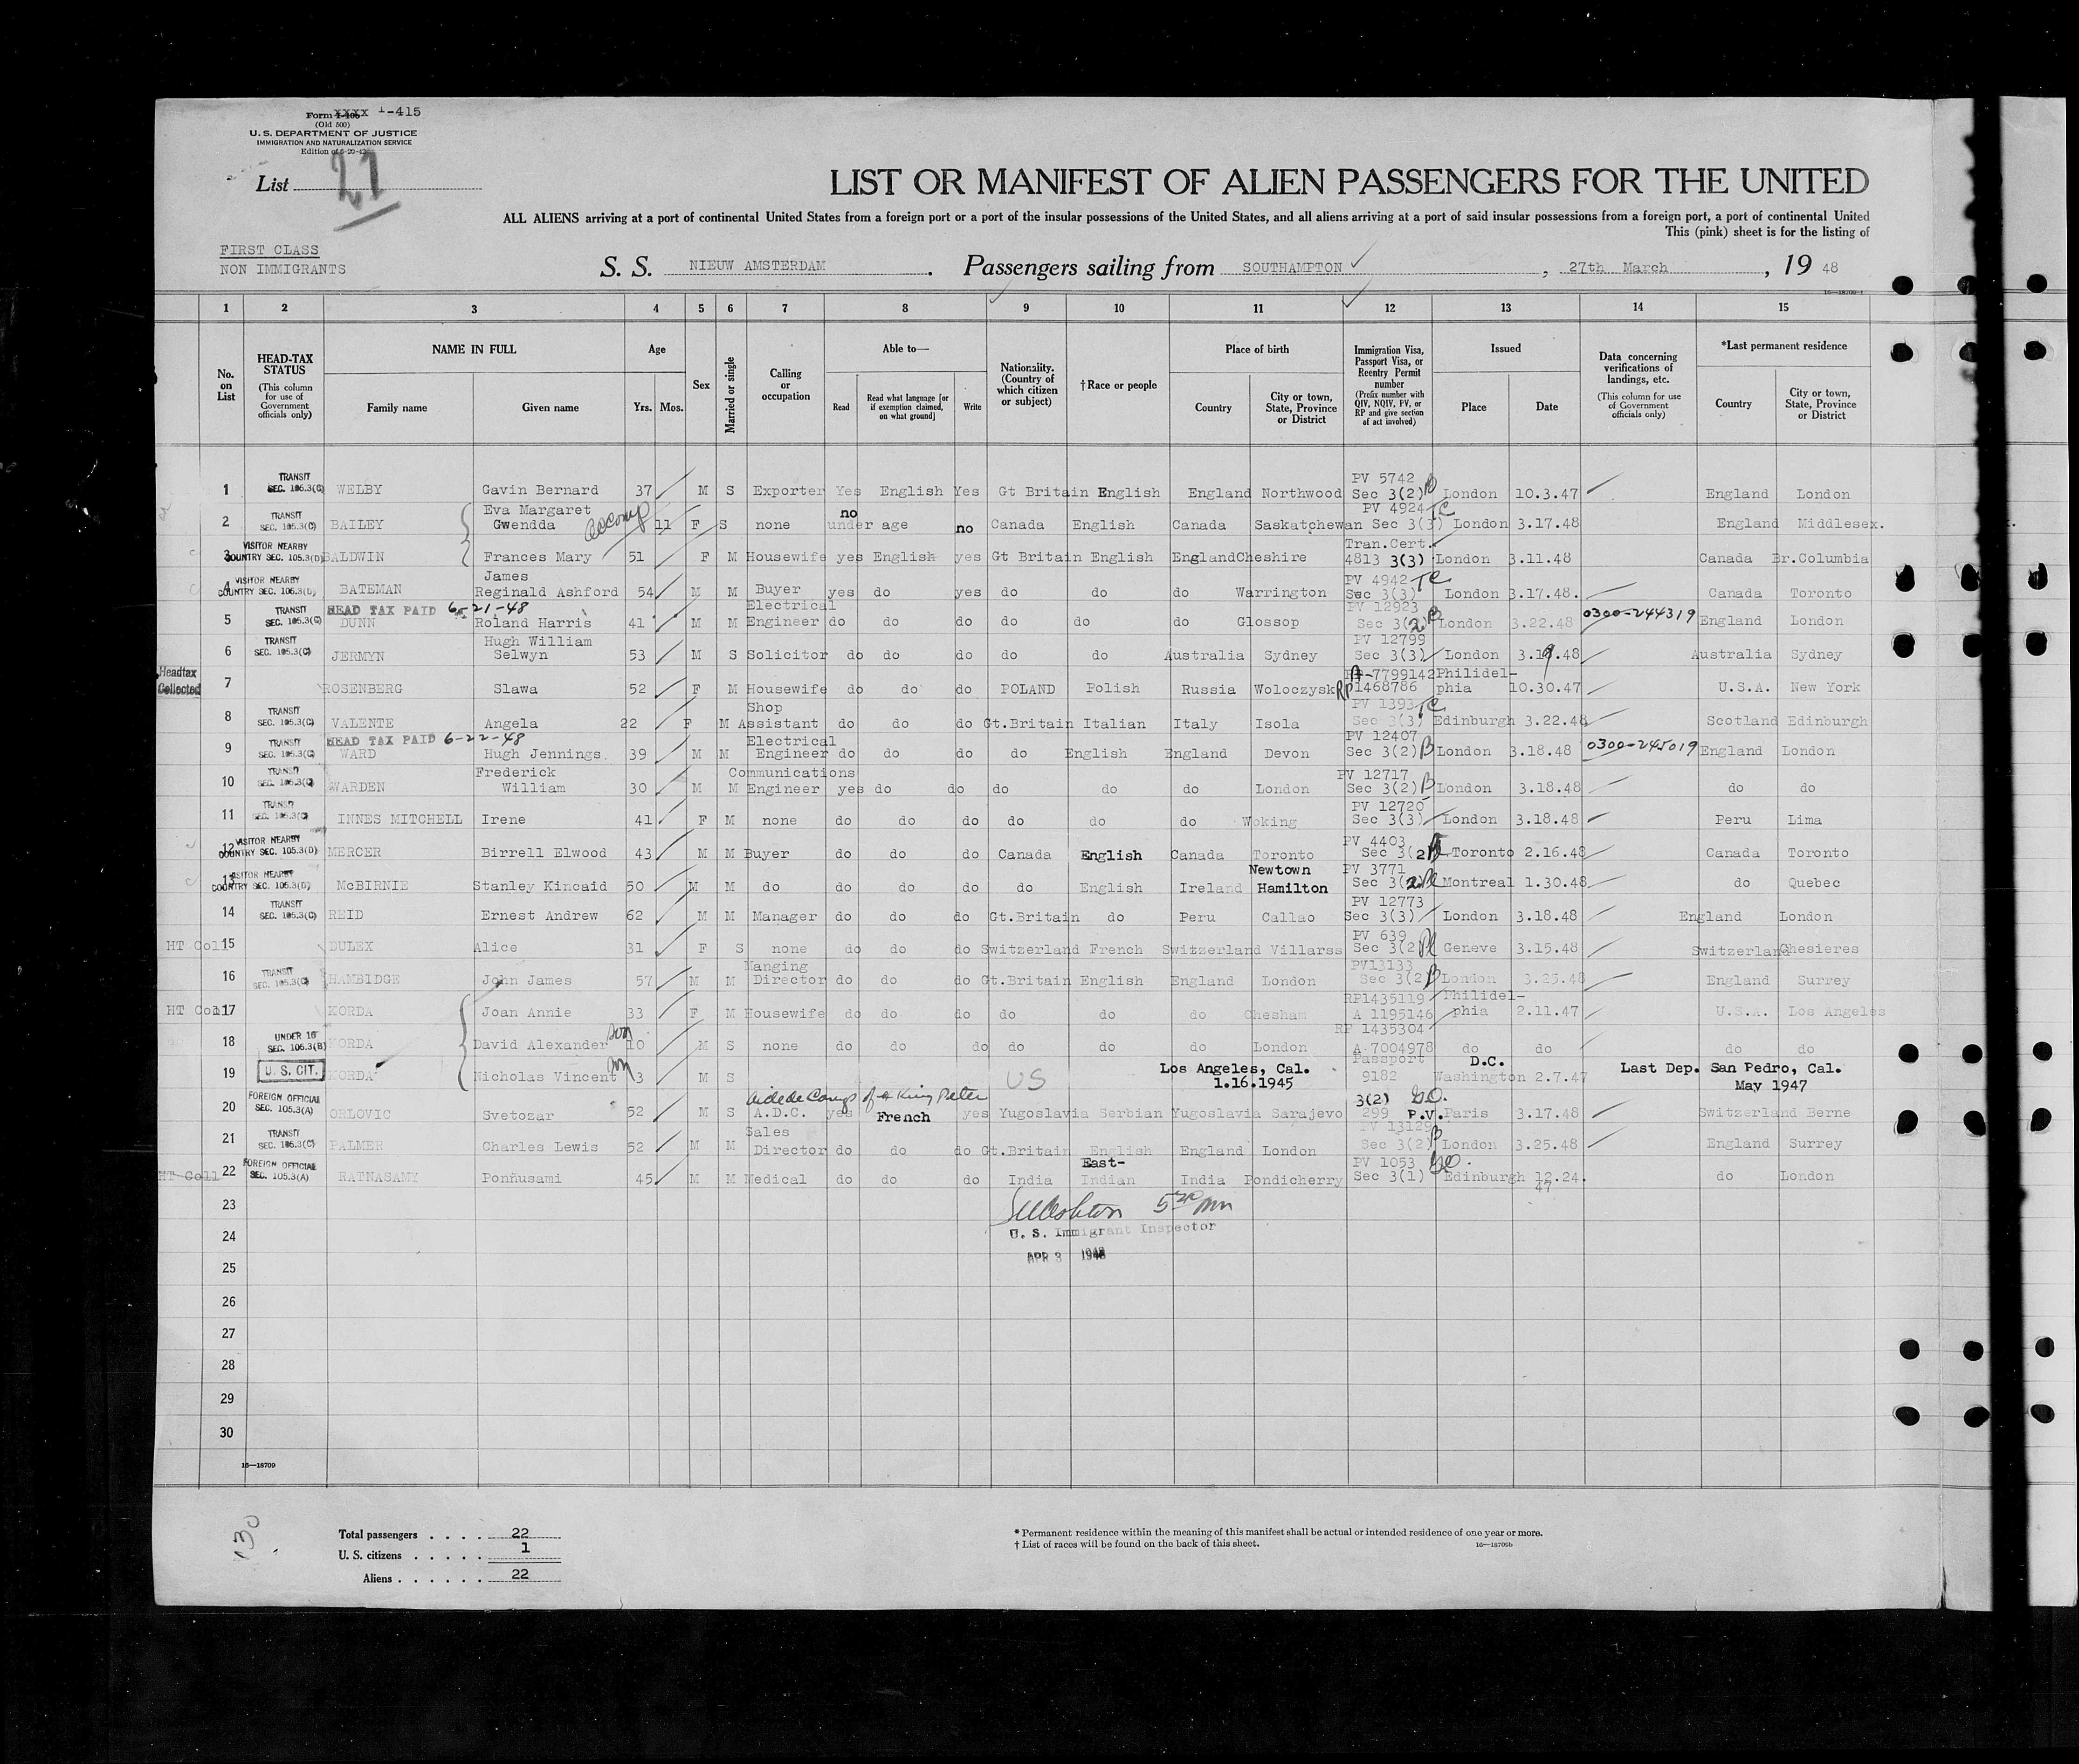 Form I-406 XXXX I-415
(Old 500)
U. S. DEPARTMENT OF JUSTICE
IMMIGRATION AND NATURALIZATION SERVICE
List 27
LIST OR MANIFEST OF ALIEN PASSENGERS FOR THE UNITED
ALL ALIENS arriving at a port of continental United States from a foreign port or a port of the insular possessions of the United States, and all aliens arriving at a port of said insular possessions from a foreign port, a port of continental United
This (pink) sheet is for the listing of
FIRST CLASS
NON IMMIGRANTS
S. S. NIEUW AMSTERDAM. Passengers sailing from SOUTHAMPTON, 27th March, 19 48
1 2 3 4 5 6 7 8 9 10 11 12 13 14 15
No. on List
HEAD-TAX STATUS (This column for use of Government officials only)
NAME IN FULL Family name Given name
Age Yrs. Mos.
Sex
Married or single
Calling or occupation
Able to— Read Read what language [or if exemption claimed, on what ground] Write
Nationality. (Country of which citizen or subject)
†Race or people
Place of birth Country City or town, State, Province or District
Immigration Visa, Passport Visa, or Reentry Permit number (Prefix number with QIV, NQIV, PV, or RP and give section of act involved)
Issued Place Date
Data concerning verifications of landings, etc. (This column for use of Government officials only)
*Last permanent residence Country City or town, State, Province or District
1 TRANSIT SEC. 105.3(C) WELBY Gavin Bernard 37 M S Exporter Yes English Yes Gt Britain English England Northwood PV 5742 Sec 3(2) London 10.3.47 England London
2 TRANSIT SEC. 105.3(C) BAILEY Eva Margaret Gwendda accomp 11 F S none no under age no Canada English Canada Saskatchewan PV 4924 Sec 3(3) London 3.17.48 England Middlesex.
3 VISITOR NEARBY COUNTRY SEC. 105.3(D) BALDWIN Frances Mary 51 F M Housewife yes English yes Gt Britain English England Cheshire Tran.Cert. 4813 3(3) London 3.11.48 Canada Br.Columbia
4 VISITOR NEARBY COUNTRY SEC. 105.3(D) BATEMAN James Reginald Ashford 54 M M Buyer yes do yes do do do Warrington PV 4942 Sec 3(3) London 3.17.48. Canada Toronto
5 TRANSIT SEC. 105.3(C) HEAD TAX PAID 6-21-48 DUNN Roland Harris 41 M M Electrical Engineer do do do do do do Glossop PV 12923 Sec 3(2) London 3.22.48 0300-244319 England London
6 TRANSIT SEC. 105.3(C) JERMYN Hugh William Selwyn 53 M S Solicitor do do do do do Australia Sydney PV 12799 Sec 3(3) London 3.19.48 Australia Sydney
Headtax Collected 7 ROSENBERG Slawa 52 F M Housewife do do do POLAND Polish Russia Woloczysk A-7799142 RP 1468786 Philidelphia 10.30.47 U.S.A. New York
8 TRANSIT SEC. 105.3(C) VALENTE Angela 22 F M Shop Assistant do do do Gt.Britain Italian Italy Isola PV 1393 Sec 3(3) Edinburgh 3.22.48 Scotland Edinburgh
9 TRANSIT SEC. 105.3(C) HEAD TAX PAID 6-22-48 WARD Hugh Jennings. 39 M M Electrical Engineer do do do do English England Devon PV 12407 Sec 3(2) London 3.18.48 0300-245019 England London
10 TRANSIT SEC. 105.3(C) WARDEN Frederick William 30 M M Communications Engineer yes do do do do do London PV 12717 Sec 3(2) London 3.18.48 do do
11 TRANSIT SEC. 105.3(C) INNES MITCHELL Irene 41 F M none do do do do do do Woking PV 12720 Sec 3(3) London 3.18.48 Peru Lima
12 VISITOR NEARBY COUNTRY SEC. 105.3(D) MERCER Birrell Elwood 43 M M Buyer do do do Canada English Canada Toronto PV 4403 Sec 3(2) Toronto 2.16.48 Canada Toronto
13 VISITOR NEARBY COUNTRY SEC. 105.3(D) McBIRNIE Stanley Kincaid 50 M M do do do do do English Ireland Newtown Hamilton PV 3771 Sec 3(2) Montreal 1.30.48 do Quebec
14 TRANSIT SEC. 105.3(C) REID Ernest Andrew 62 M M Manager do do do Gt.Britain do Peru Callao PV 12773 Sec 3(3) London 3.18.48 England London
HT Col 15 DULEX Alice 31 F S none do do do Switzerland French Switzerland Villarss PV 639 Sec 3(2) Geneve 3.15.48 Switzerland Chesieres
16 TRANSIT SEC. 105.3(C) HAMBIDGE John James 57 M M Manging Director do do do Gt.Britain English England London PV13133 Sec 3(2) London 3.25.48 England Surrey
HT Col 17 KORDA Joan Annie 33 F M Housewife do do do do do do Chesham RP1435119 A 1195146 Philidelphia 2.11.47 U.S.A. Los Angeles
18 UNDER 16 SEC. 105.3(B) KORDA David Alexander son 10 M S none do do do do do do London RP 1435304 A-7004978 do do do do
19 U. S. CIT. KORDA Nicholas Vincent son 3 M S US Los Angeles, Cal. 1.16.1945 Passport 9182 Washington D.C. 2.7.47 Last Dep. San Pedro, Cal. May 1947
20 FOREIGN OFFICIAL SEC. 105.3(A) ORLOVIC Svetozar 52 M S Aide de Camp of King Peter A.D.C. yes French yes Yugoslavia Serbian Yugoslavia Sarajevo 3(2) 299 P.V. Paris 3.17.48 Switzerland Berne
21 TRANSIT SEC. 105.3(C) PALMER Charles Lewis 52 M M Sales Director do do do Gt.Britain English England London PV 13129 Sec 3(2) London 3.25.48 England Surrey
HT Coll 22 FOREIGN OFFICIAL SEC. 105.3(A) RATNASAMY Ponnusami 45 M M Medical do do do India East-Indian India Pondicherry PV 1053 Sec 3(1) Edinburgh 12.24.47 do London
23
24 U. S. Immigrant Inspector
APR 3 1948
25
26
27
28
29
30
16—18709
130
Total passengers . . . . 22
U. S. citizens . . . . . 1
Aliens . . . . . . 22
* Permanent residence within the meaning of this manifest shall be actual or intended residence of one year or more.
† List of races will be found on the back of this sheet.
16—18709b